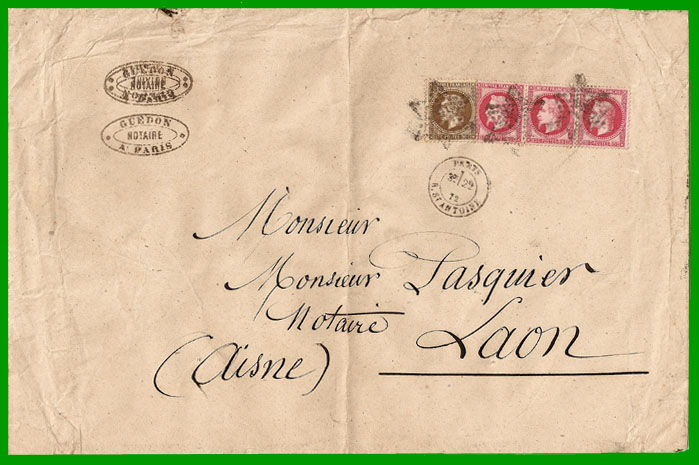 GUEDON
NOTAIRE
A PARIS
GUEDON
NOTAIRE
A PARIS
PARIS
R. ST ANTOINE
Monsieur
Monsieur Pasquier
Notaire
Laon
(Aisne)